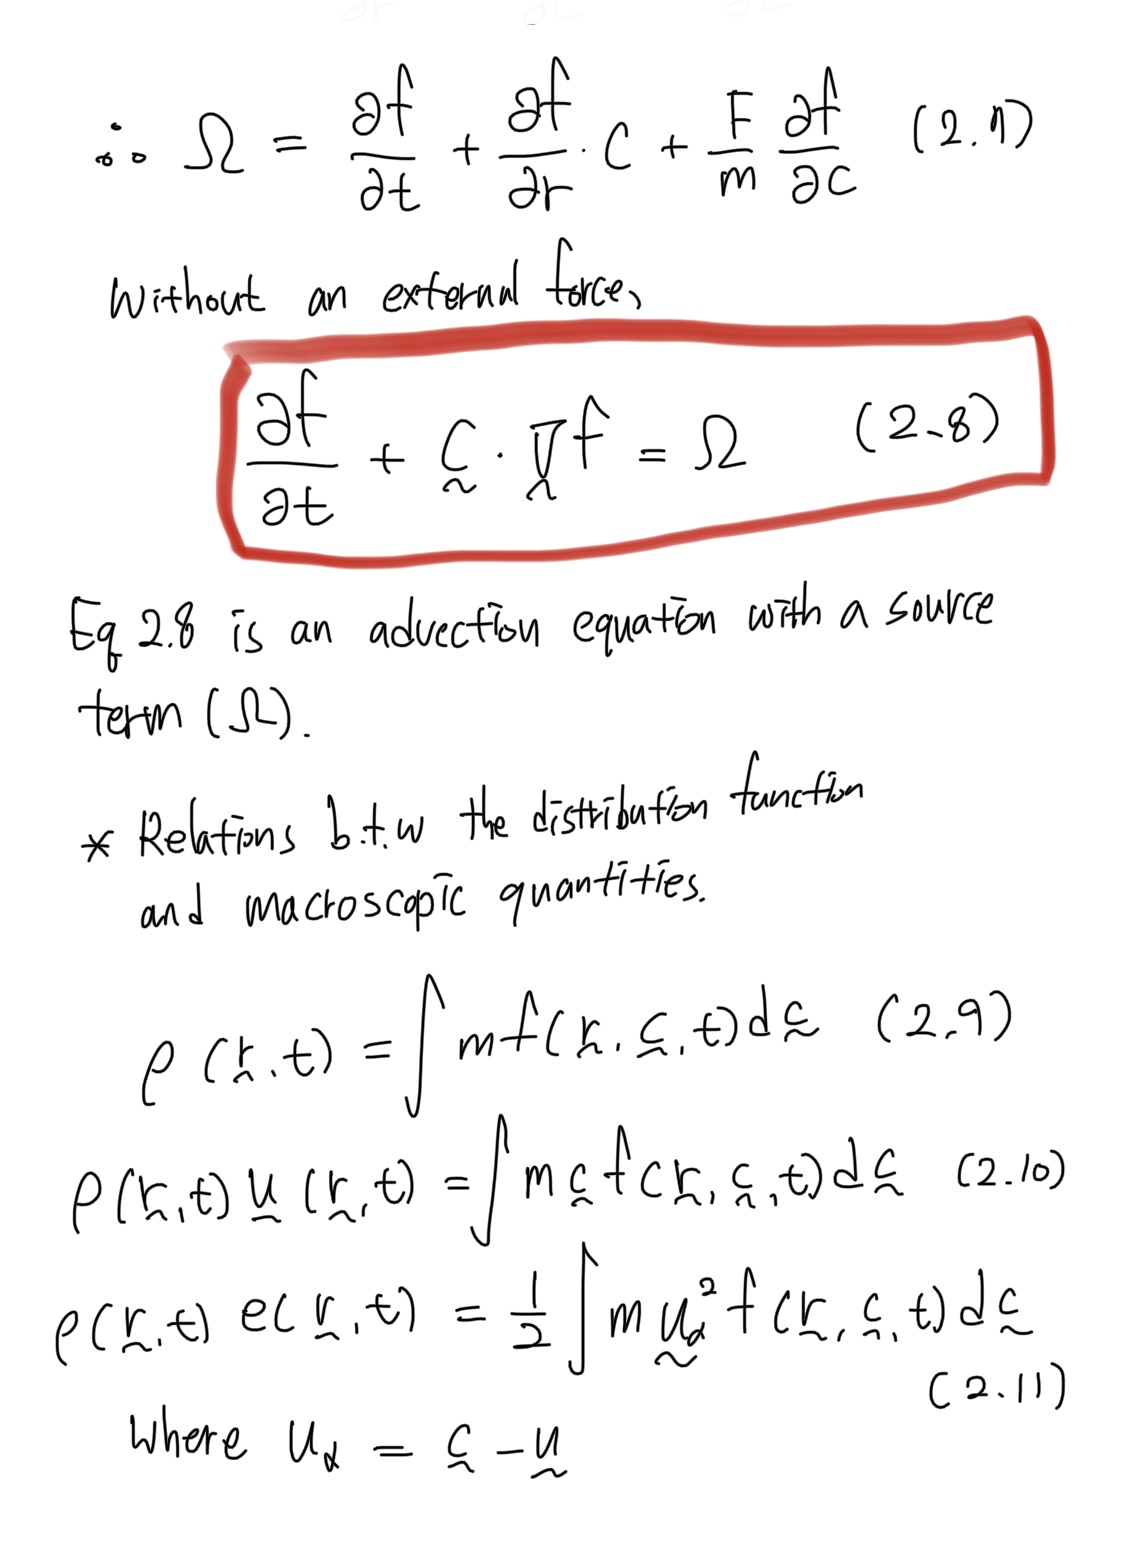 ∴ Ω = ∂f/∂t + ∂f/∂r · C + F/m ∂f/∂c (2.7)
Without an external force,
∂f/∂t + c · ∇f = Ω (2.8)
Eq 2.8 is an advection equation with a source
term (Ω).
* Relations b.t.w the distribution function
and macroscopic quantities.
ρ(r,t) = ∫ m f(r,c,t) dc (2.9)
ρ(r,t) u(r,t) = ∫ m c f(r,c,t) dc (2.10)
ρ(r,t) e(r,t) = 1/2 ∫ m u_α² f(r,c,t) dc
(2.11)
Where u_α = c − u